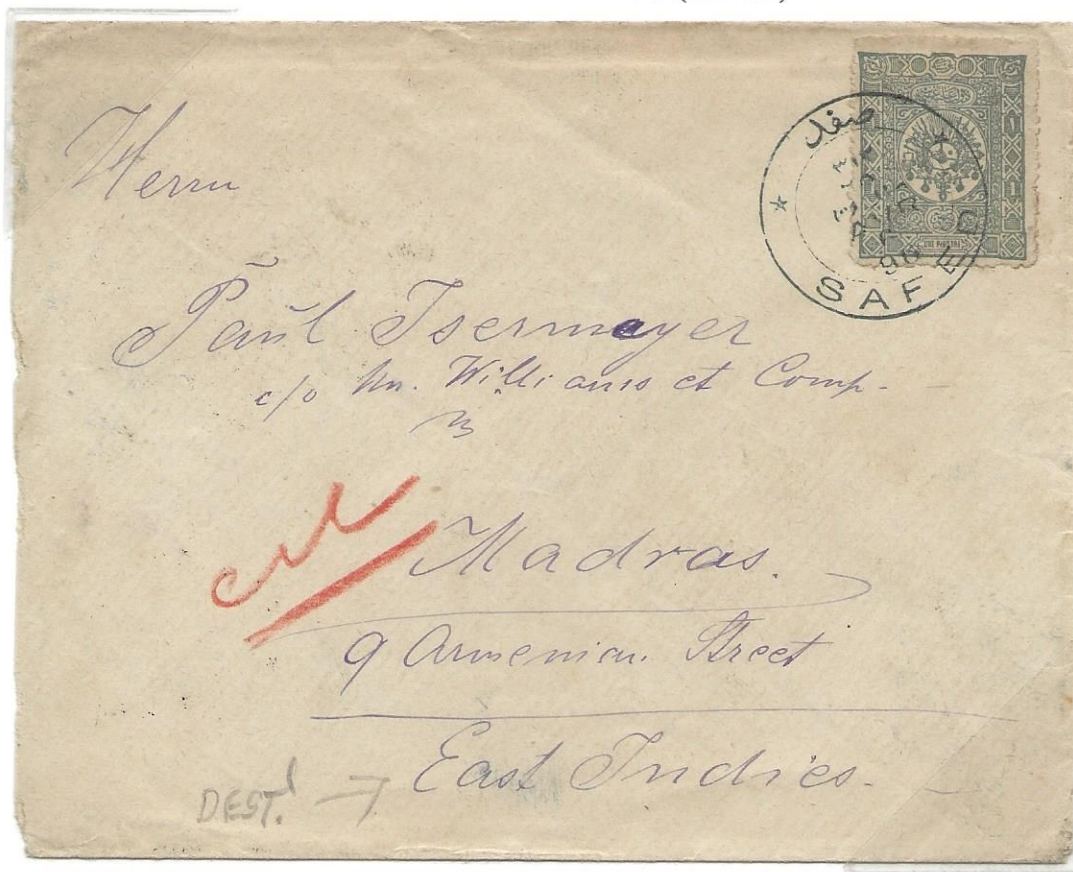 Herrn
Paul Isermeyer
c/o Mr. Williams et Comp.
Madras.
9 Armenian Street
East Indies.
DEST!
صفد
96
SAFED
UNE PIASTRE